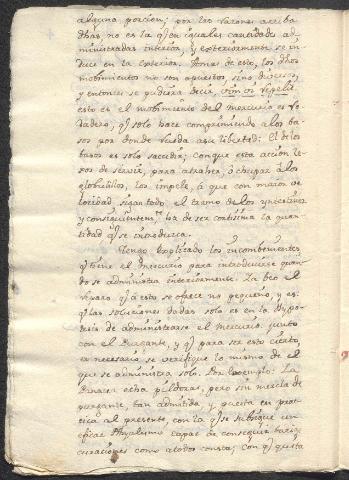 alguna porcion; por las razones arriba
dhas no es la q.e en iguales cantidades ad-
ministradas interior, y exteriormente se in-
duce en la exterior. Demas de esto, los dhos
mobimientos no son opuestos, sino diversos,
y entonces se pudiera decir,
esto es el mobimiento del mercurio es ve-
dadero, q.e solo hace comprimiendo a los ba-
sos por donde rueda a su libertad: El de los
basos es solo sacudir; conque esta accion le-
xos de servir, para atraher, ò chupar á los
globulillos, los impele, á que con maior ce-
loridad sigan todo el tramo de los yntestinos
y consiguientem.te ha de ser cortisima la quan-
tidad q.e se introdusca.
Tengo explicado los incombenientes
q.e tiene el Mercurio para introducirse quan-
do se administra interiormente. Ya beo el
reparo q.e á esto se ofrece no pequeño, y es:
q.e las soluciones dadas solo es en la Hypo-
tesis de administrarse el mercurio junto
con el Purgante, y q.e para ser esto cierto,
es necesario se verifique lo mismo de el
que se administra solo. Por exemplo: La
Panacea echa pildoras, pero sin mezcla de
purgante, tan admitida, y puesta en prac-
tica al presente, con la q.e se subsigue un
eficaz Phyalismo capaz de conseguir barias
curaciones como a todos consta; con q.e questa